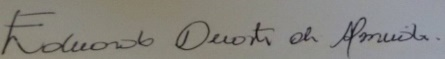 Eduardo Duarte de Almeida.